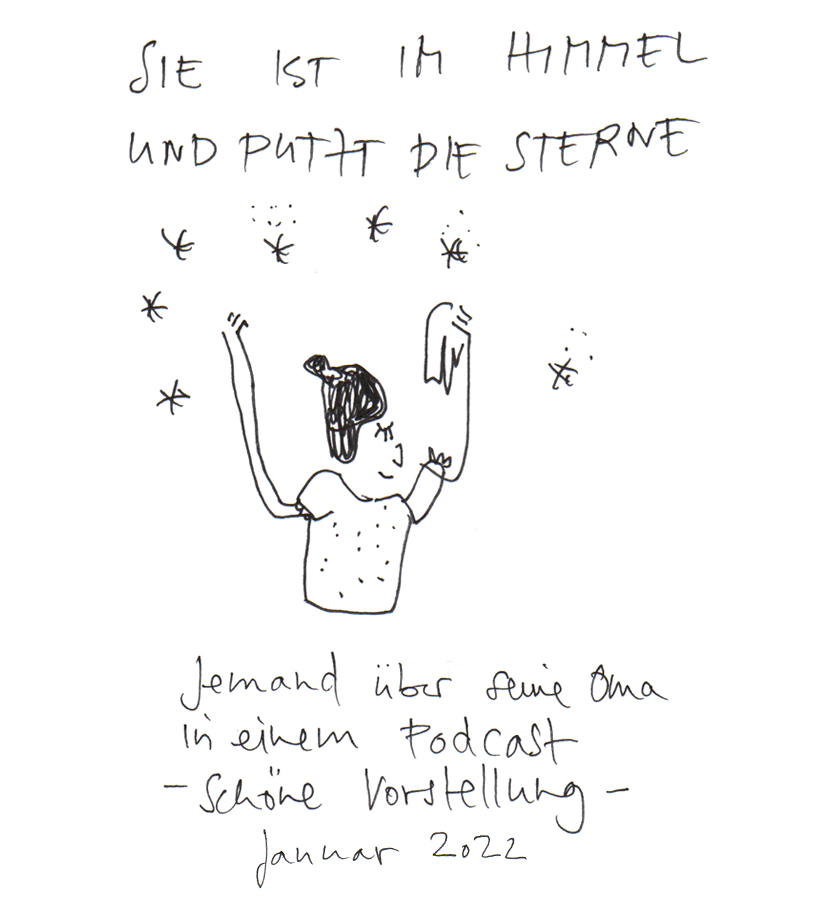 SIE IST IM HIMMEL
UND PUTZT DIE STERNE
Jemand über seine Oma
in einem Podcast
- Schöne Vorstellung -
Januar 2022